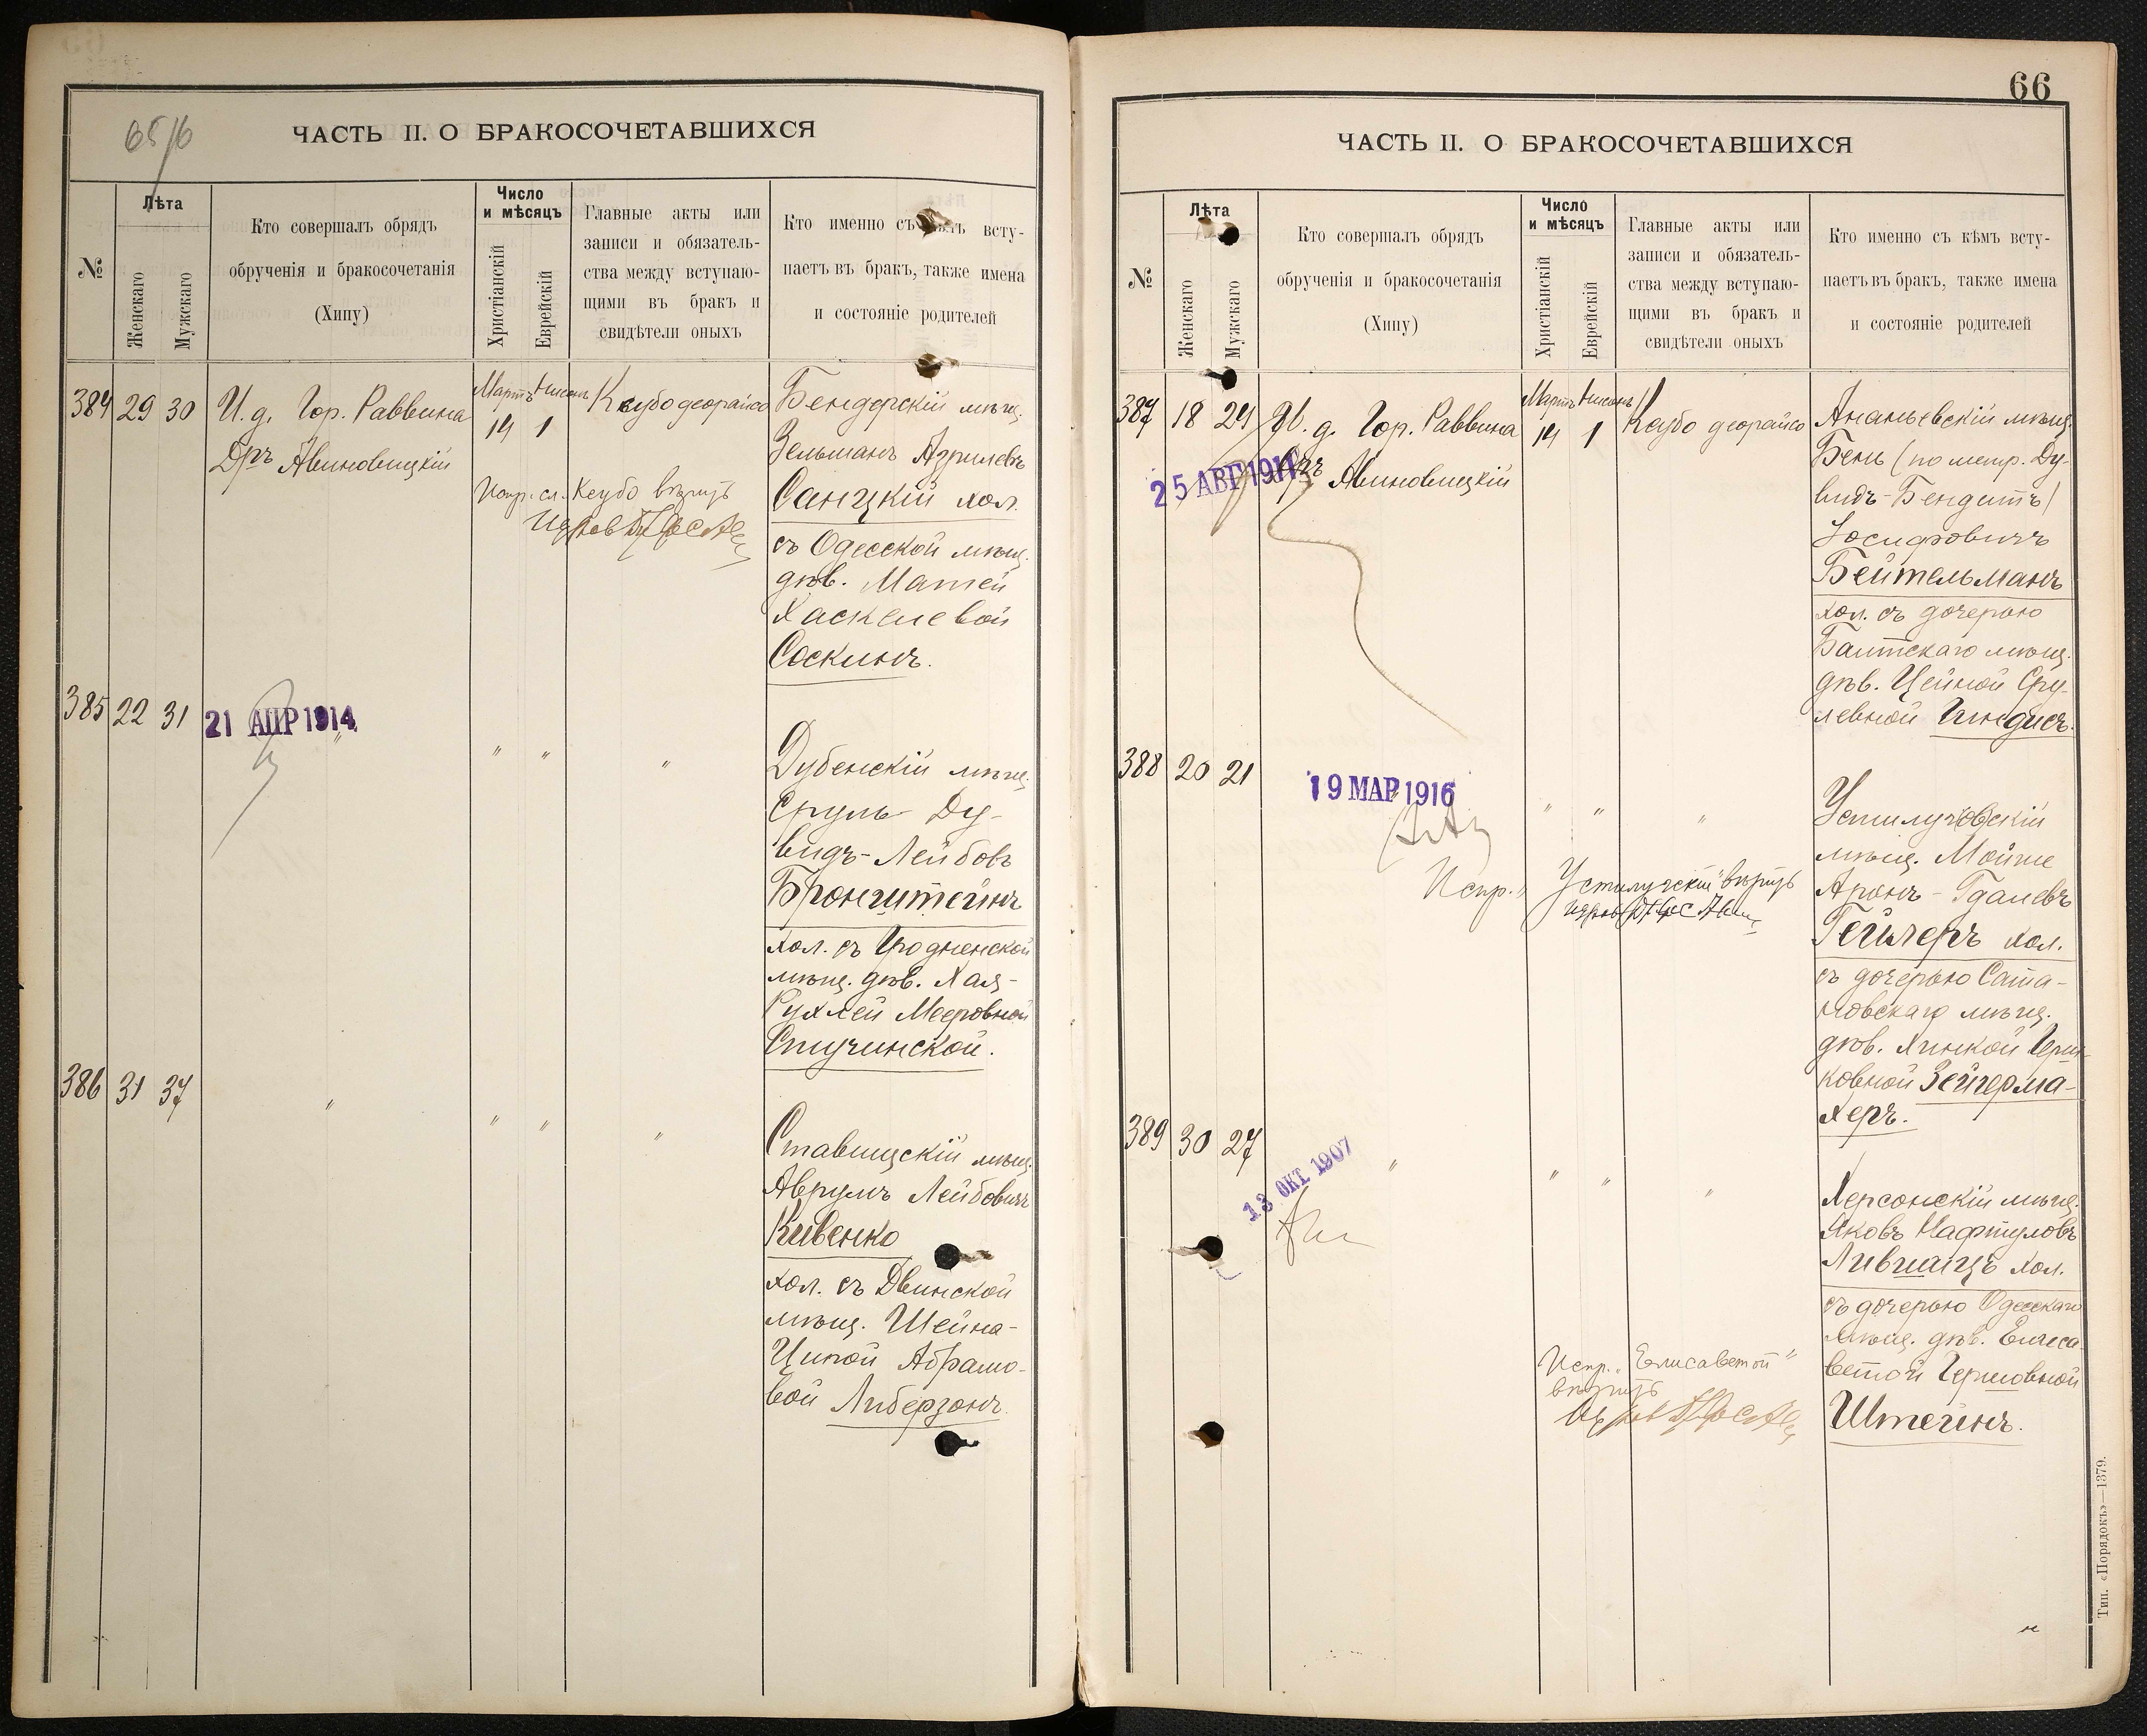 65/6
ЧАСТЬ II. О БРАКОСОЧЕТАВШИХСЯ
№
Лѣта
Женскаго
Мужскаго
Кто совершалъ обрядъ
обрученія и бракосочетанія
(Хипу)
Число
и мѣсяцъ
Христіанскій
Еврейскій
Главные акты или
записи и обязатель-
ства между вступаю-
щими въ бракъ и
свидѣтели оныхъ
Кто именно съ кѣмъ всту-
паетъ въ бракъ, также имена
и состояніе родителей
384 29 30
И. д. Гор. Раввина
Дръ Авиновицкій
Мартъ Нисонъ
14 1
Кеубо деорайсо
Испр. сл. Кеубо вѣрить
Бендерскій мѣщ.
Зельманъ Азрилевъ
Санцкій хол.
съ Одесской мѣщ.
дѣв. Матей
Хаскелевой
Соскинъ.
385 22 31
21 АПР 1914
" " " "
Дубенскій мѣщ.
Сруль-Ду-
видъ-Лейбовъ
Бронштейнъ
хол. съ Гродненской
мѣщ. дѣв. Хая-
Рухлей Мееровной
Стучинской.
386 31 37
" " " "
Ставищскій мѣщ.
Аврумъ Лейбовичъ
Кивенко
хол. съ Двинской
мѣщ. Шейна-
Ципой Абрамо-
вой Либерзонъ.
66
ЧАСТЬ II. О БРАКОСОЧЕТАВШИХСЯ
№
Лѣта
Женскаго
Мужскаго
Кто совершалъ обрядъ
обрученія и бракосочетанія
(Хипу)
Число
и мѣсяцъ
Христіанскій
Еврейскій
Главные акты или
записи и обязатель-
ства между вступаю-
щими въ бракъ и
свидѣтели оныхъ
Кто именно съ кѣмъ всту-
паетъ въ бракъ, также имена
и состояніе родителей
387 18 24
И. д. Гор. Раввина
Дръ Авиновицкій
25 АВГ 1911
Мартъ Нисонъ
14 1
Кеубо деорайсо
Ананьевскій мѣщ.
Бень (по метр. Ду-
видъ-Бендитъ)
Іосифовичъ
Бейтельманъ
хол. съ дочерью
Балтскаго мѣщ.
дѣв. Цейной Сру-
левной Гиндисъ.
388 20 21
19 МАР 1916
" " "
Испр. "Устилугскій" вѣрить
Устилугскій
мѣщ. Мойше
Аронъ-Гдалевъ
Гейлеръ хол.
съ дочерью Сата-
новскаго мѣщ.
дѣв. Хинкой Герш-
ковной Зейгерма-
херъ.
389 30 27
13 ОКТ 1907
" " " "
Испр. "Елисаветой"
вѣрить
Херсонскій мѣщ.
Яковъ Нафтуловъ
Лившицъ хол.
съ дочерью Одесскаго
мѣщ. дѣв. Елиса-
ветой Гершовной
Штейнъ.
Тип. «Порядокъ»—1379.